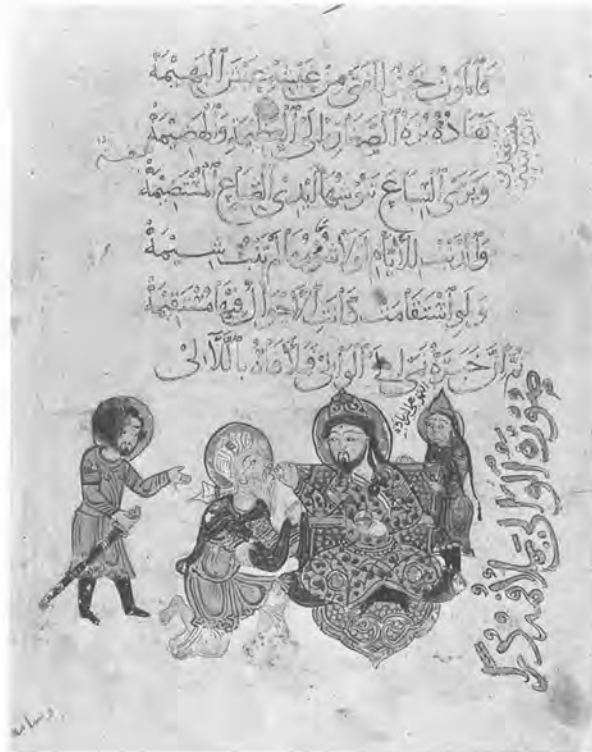 فَالْمَوْتُ خَيْرٌ لِلْفَتَى مِنْ عَيْشِهِ عَيْشَ الْبَهِيمَةْ
تَقْتَادُهُ بُرَةُ الصَّغَارِ إِلَى الْعَظِيمَةِ وَالْهَضِيمَةْ
وَيَرَى السِّبَاعَ تَنُوشُهَا أَيْدِي الضِّبَاعِ الْمُسْتَضِيمَةْ
وَالذَّنْبُ لِلْأَيَّامِ لَوْلَا شُؤْمُهَا لَمْ تَنْبُ شِيمَةْ
وَلَوِ اسْتَقَامَتْ كَانَتِ الْأَحْوَالُ فِيهَا مُسْتَقِيمَةْ
ثُمَّ إِنَّ خَبَرَهُ نَمَى إِلَى الْوَالِي فَمَلَأَ فَاهُ بِاللَّآلِي
صُورَةُ الْوَالِي يَمْلَأُ فَاهُ